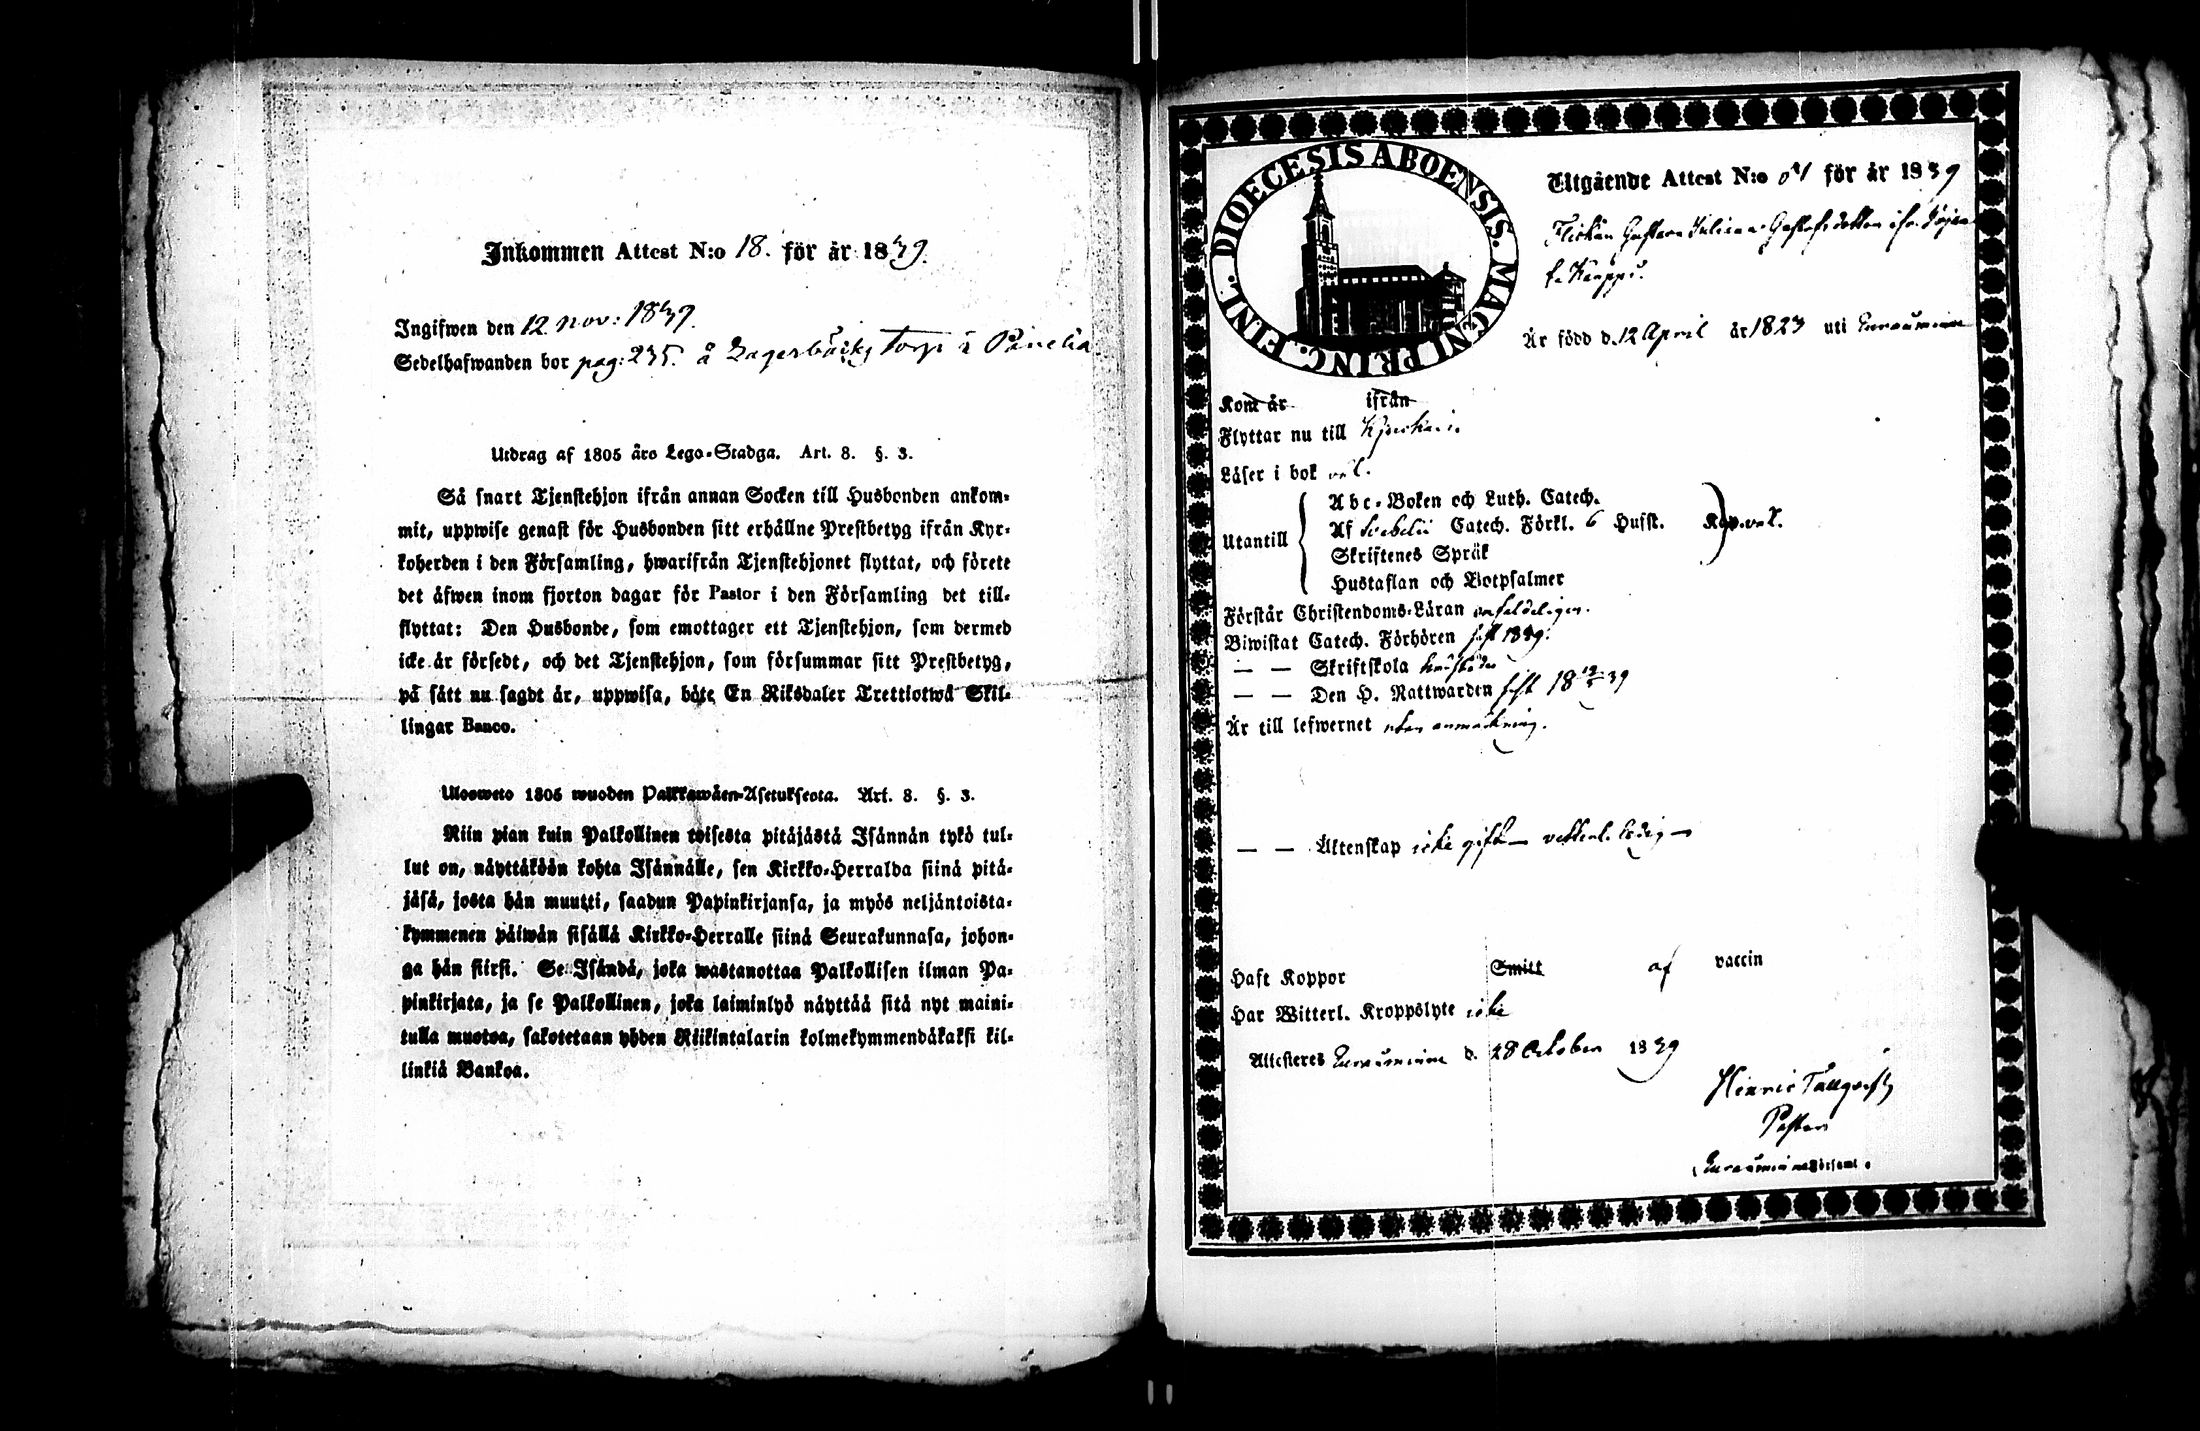 Inkommen Attest N:o 18. för år 1839.
Ingifwen den 12 nov: 1839.
Sedelhafwanden bor pag: 235. å Lagerbäcks Torp i Panelia
Utdrag af 1805 års Lego-Stadga. Art. 8. §. 3.
Så snart Tjenstehjon ifrån annan Socken till Husbonden ankom-
mit, uppwise genast för Husbonden sitt erhållne Prestbetyg ifrån Kyr-
koherden i den Församling, hwarifrån Tjenstehjonet flyttat, och förete
det äfwen inom fjorton dagar för Pastor i den Församling det till-
flyttat: Den Husbonde, som emottager ett Tjenstehjon, som dermed
icke är försedt, och det Tjenstehjon, som försummar sitt Prestbetyg,
på sätt nu sagdt är, uppwisa, böte En Riksdaler Trettiotwå Skil-
lingar Banco.
Ulosweto 1805 wuoden Palkkawäen-Asetuksesta. Art. 8. §. 3.
Niin pian kuin Palkollinen toisesta pitäjästä Isännän tykö tul-
lut on, näyttäköön kohta Isännälle, sen Kirkko-Herralda siinä pitä-
jäsä, josta hän muutti, saadun Papinkirjansa, ja myös neljäntoista-
kymmenen päiwän sisällä Kirkko-Herralle siinä Seurakunnasa, johon-
ga hän siirsi. Se Isändä, joka wastanottaa Palkollisen ilman Pa-
pinkirjata, ja se Palkollinen, joka laiminlyö näyttää sitä nyt maini-
tulla muotoa, sakotetaan yhden Riikintalarin kolmekymmendäkaksi kil-
linkiä Bankoa.
DIOECESIS ABOENSIS. MAGNI PRINC. FINL.
Utgående Attest N:o för år 1839
Flickan Gustava Juliana Gustafsdotter ifr.
fr. Karppi.
Är född d. 12 April år 1823 uti Euraåminne
Kom år ifrån
Flyttar nu till Kjukais.
Läser i bok väl.
Utantill
Abc-Boken och Luth. Catech.
Af Svebelii Catech. Förkl. 6 Hufst. Kap. väl.
Skriftenes Språk
Hustaflan och Botpsalmer
Förstår Christendoms-Läran
Biwistat Catech. Förhören sist 1839.
— — Skriftskola
— — Den H. Nattwarden sist 18 39
Är till lefwernet utan anmärkning.
— — Äktenskap icke gift — vetterl. ledig —
Haft Koppor Smitt af vaccin
Har Witterl. Kroppslyte icke
Attesteres Euraåminne d. 28 October 1839
Henric Tallqvist
Pastor
i Euraåminne Församl.